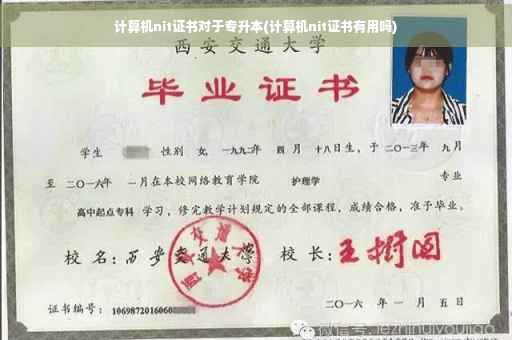 计算机nit证书对于专升本(计算机nit证书有用吗)
西安交通大学
毕业证书
学生 性别 女, 一九九二年 四 月 十八日生, 于 二〇一三年 九月
至 二〇一六年 一月在本校网络教育学院 护理学 专业
高中起点专科 学习, 修完教学计划规定的全部课程, 成绩合格, 准予毕业。
校 名: 西安交通大学 校 长: 王树国
西安交通大学
证书编号: 1069872016060
二〇一六 年 一 月 五 日
微信号: jezhihuiyoujiao